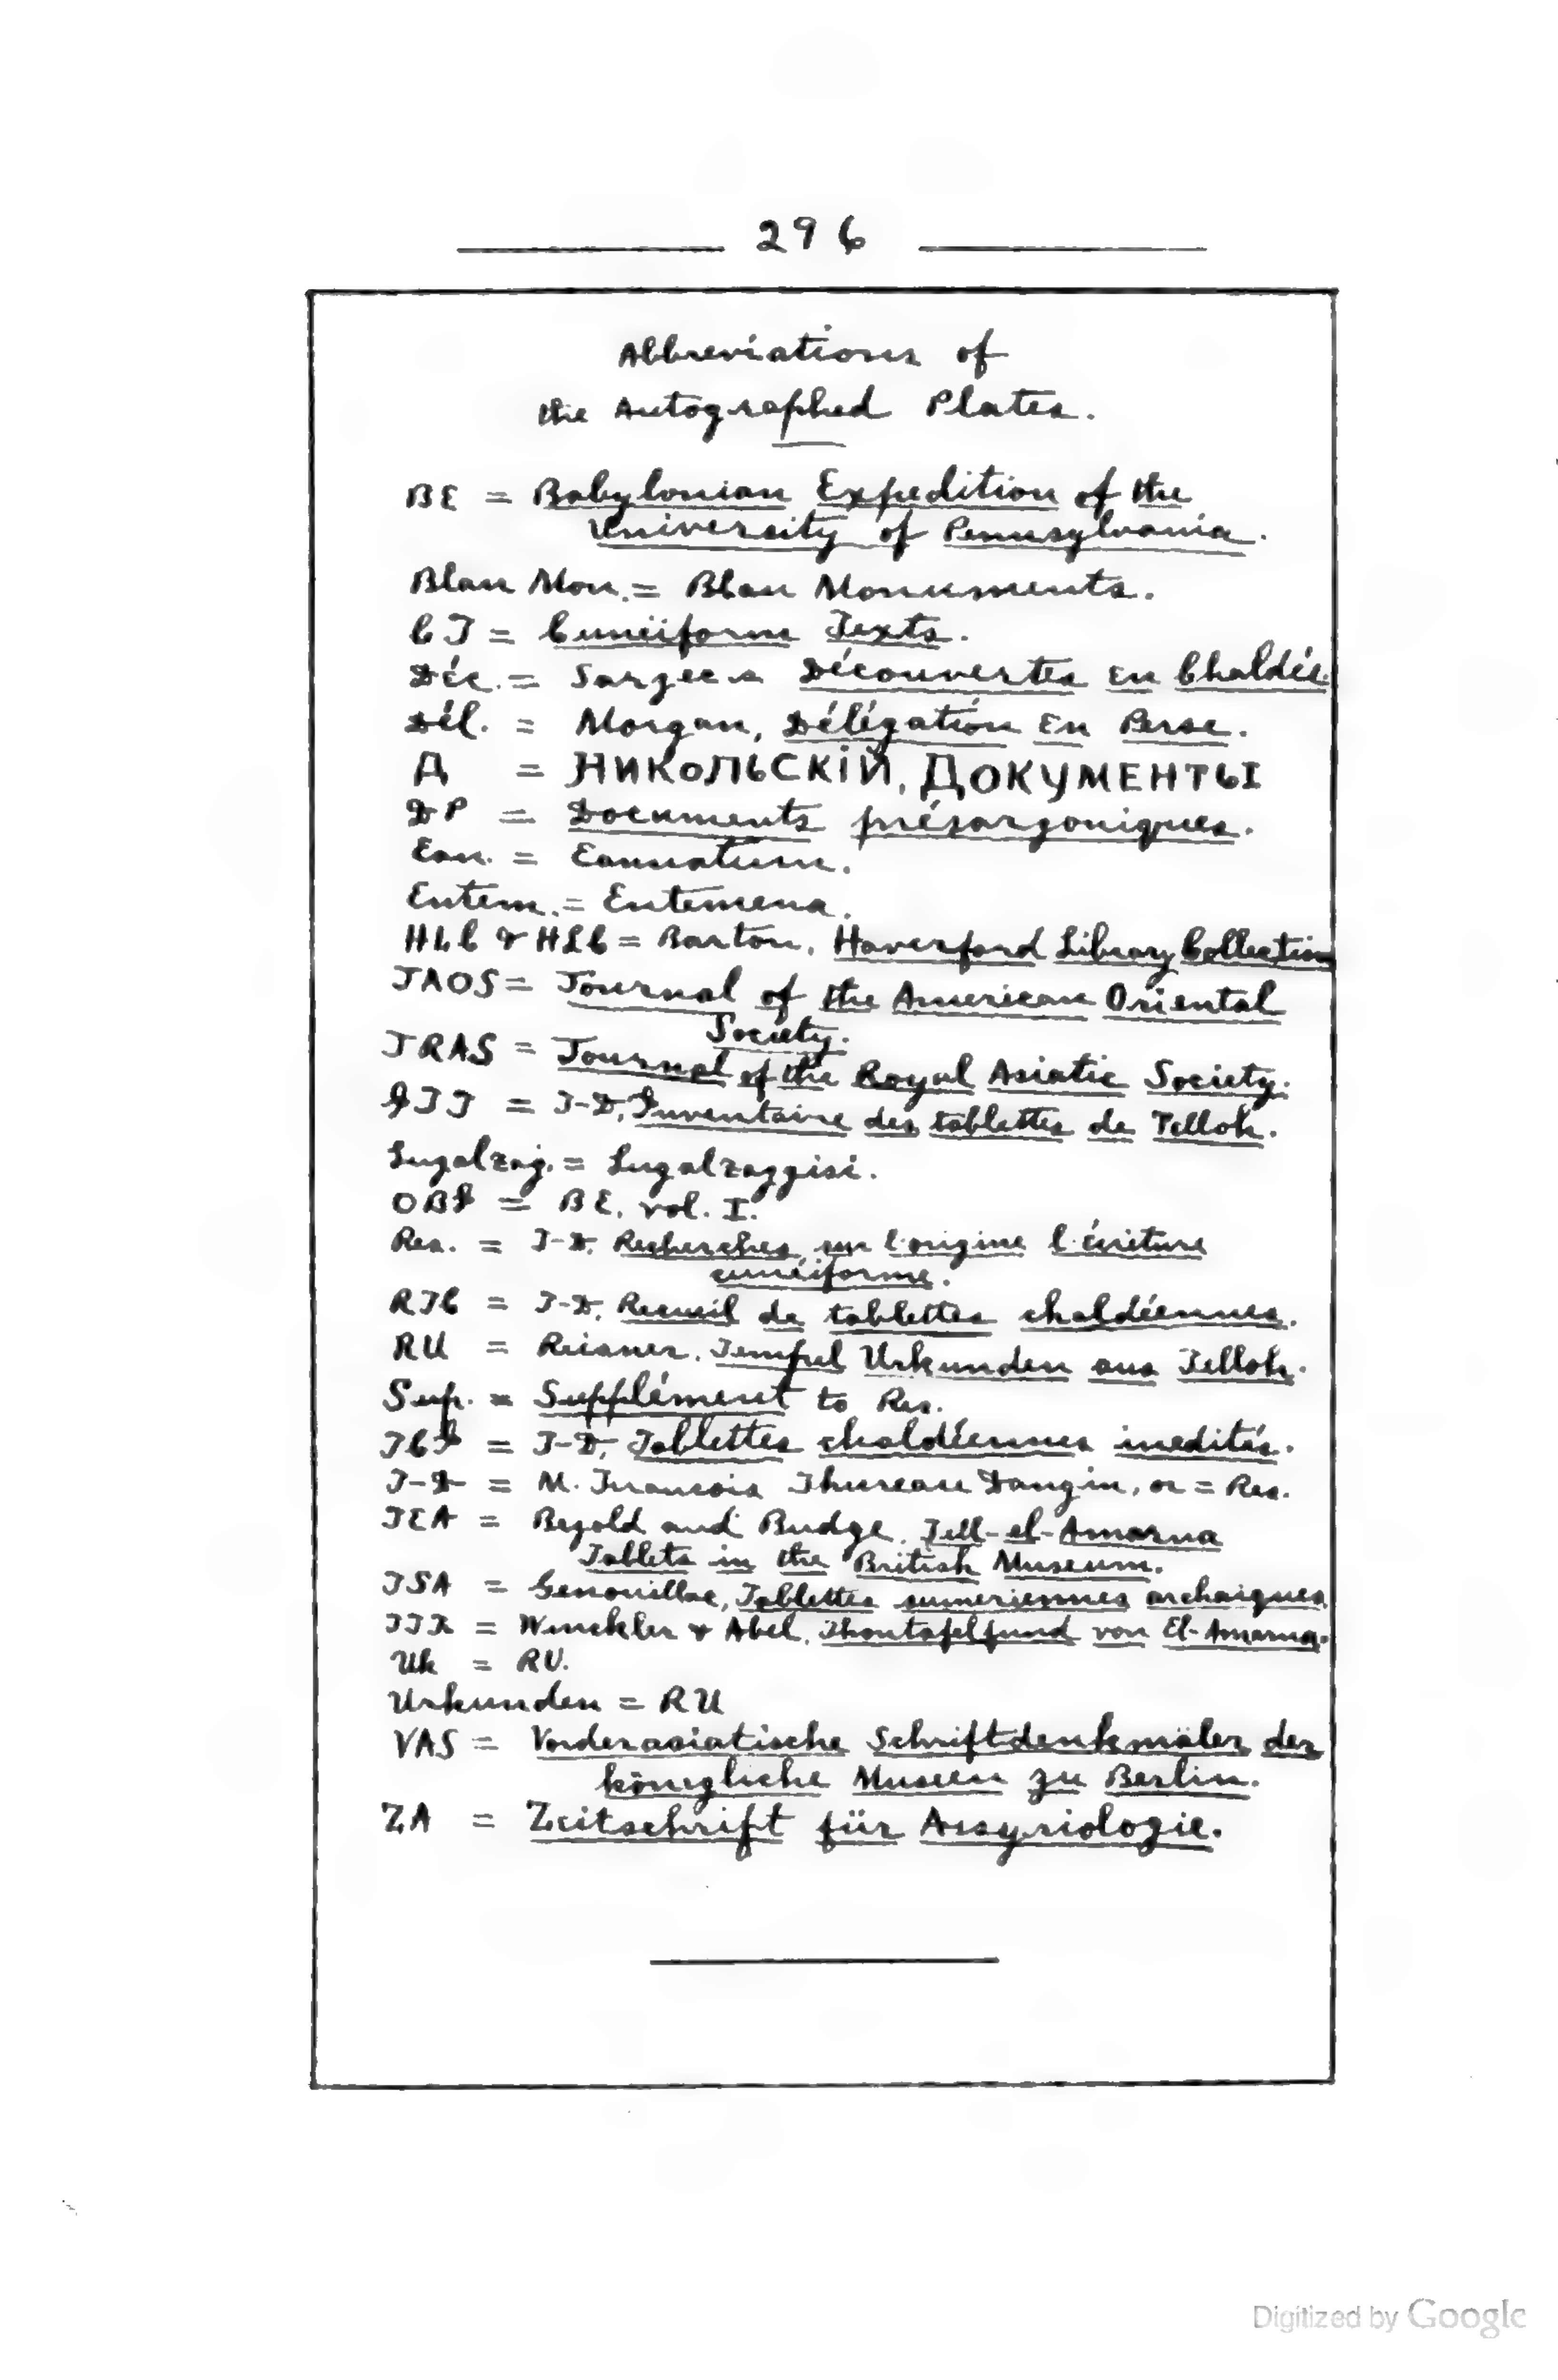 296
Abbreviations of
the Autographed Plates.
BE = Babylonian Expedition of the
University of Pennsylvania.
Blau Mon. = Blau Monuments.
CT = Cuneiform Texts.
Déc. = Sarzec's Découvertes en Chaldée.
Dél. = Morgan, Délégation en Perse.
Д = НИКОЛЬСКІЙ, ДОКУМЕНТЫ
DP = Documents présargoniques.
Ean. = Eannatum.
Entem. = Entemena.
HLC & HLC = Barton, Haverford Library Collection
JAOS = Journal of the American Oriental
Society.
JRAS = Journal of the Royal Asiatic Society.
ITT = T-D, Inventaire des tablettes de Telloh.
Lugalzag. = Lugalzaggisi.
OBI = BE, vol. I.
Rec. = T-D, Recherches sur l'origine l'écriture
cunéiforme.
RTC = T-D, Recueil de tablettes chaldéennes.
RU = Reisner, Tempel Urkunden aus Telloh.
Sup. = Supplément to Rec.
TCI = T-D, Tablettes chaldéennes inedités.
T-D = M. Francois Thureau Dangin, or = Rec.
TEA = Bezold and Budge, Tell-el-Amarna
Tablets in the British Museum.
TSA = Genouillac, Tablettes sumeriennes archaiques
TTA = Winckler & Abel, Thontafelfund von El-Amarna.
Uk = RU.
Urkunden = RU
VAS = Vorderasiatische Schriftdenkmäler der
königliche Museen zu Berlin.
ZA = Zeitschrift für Assyriologie.
Digitized by Google